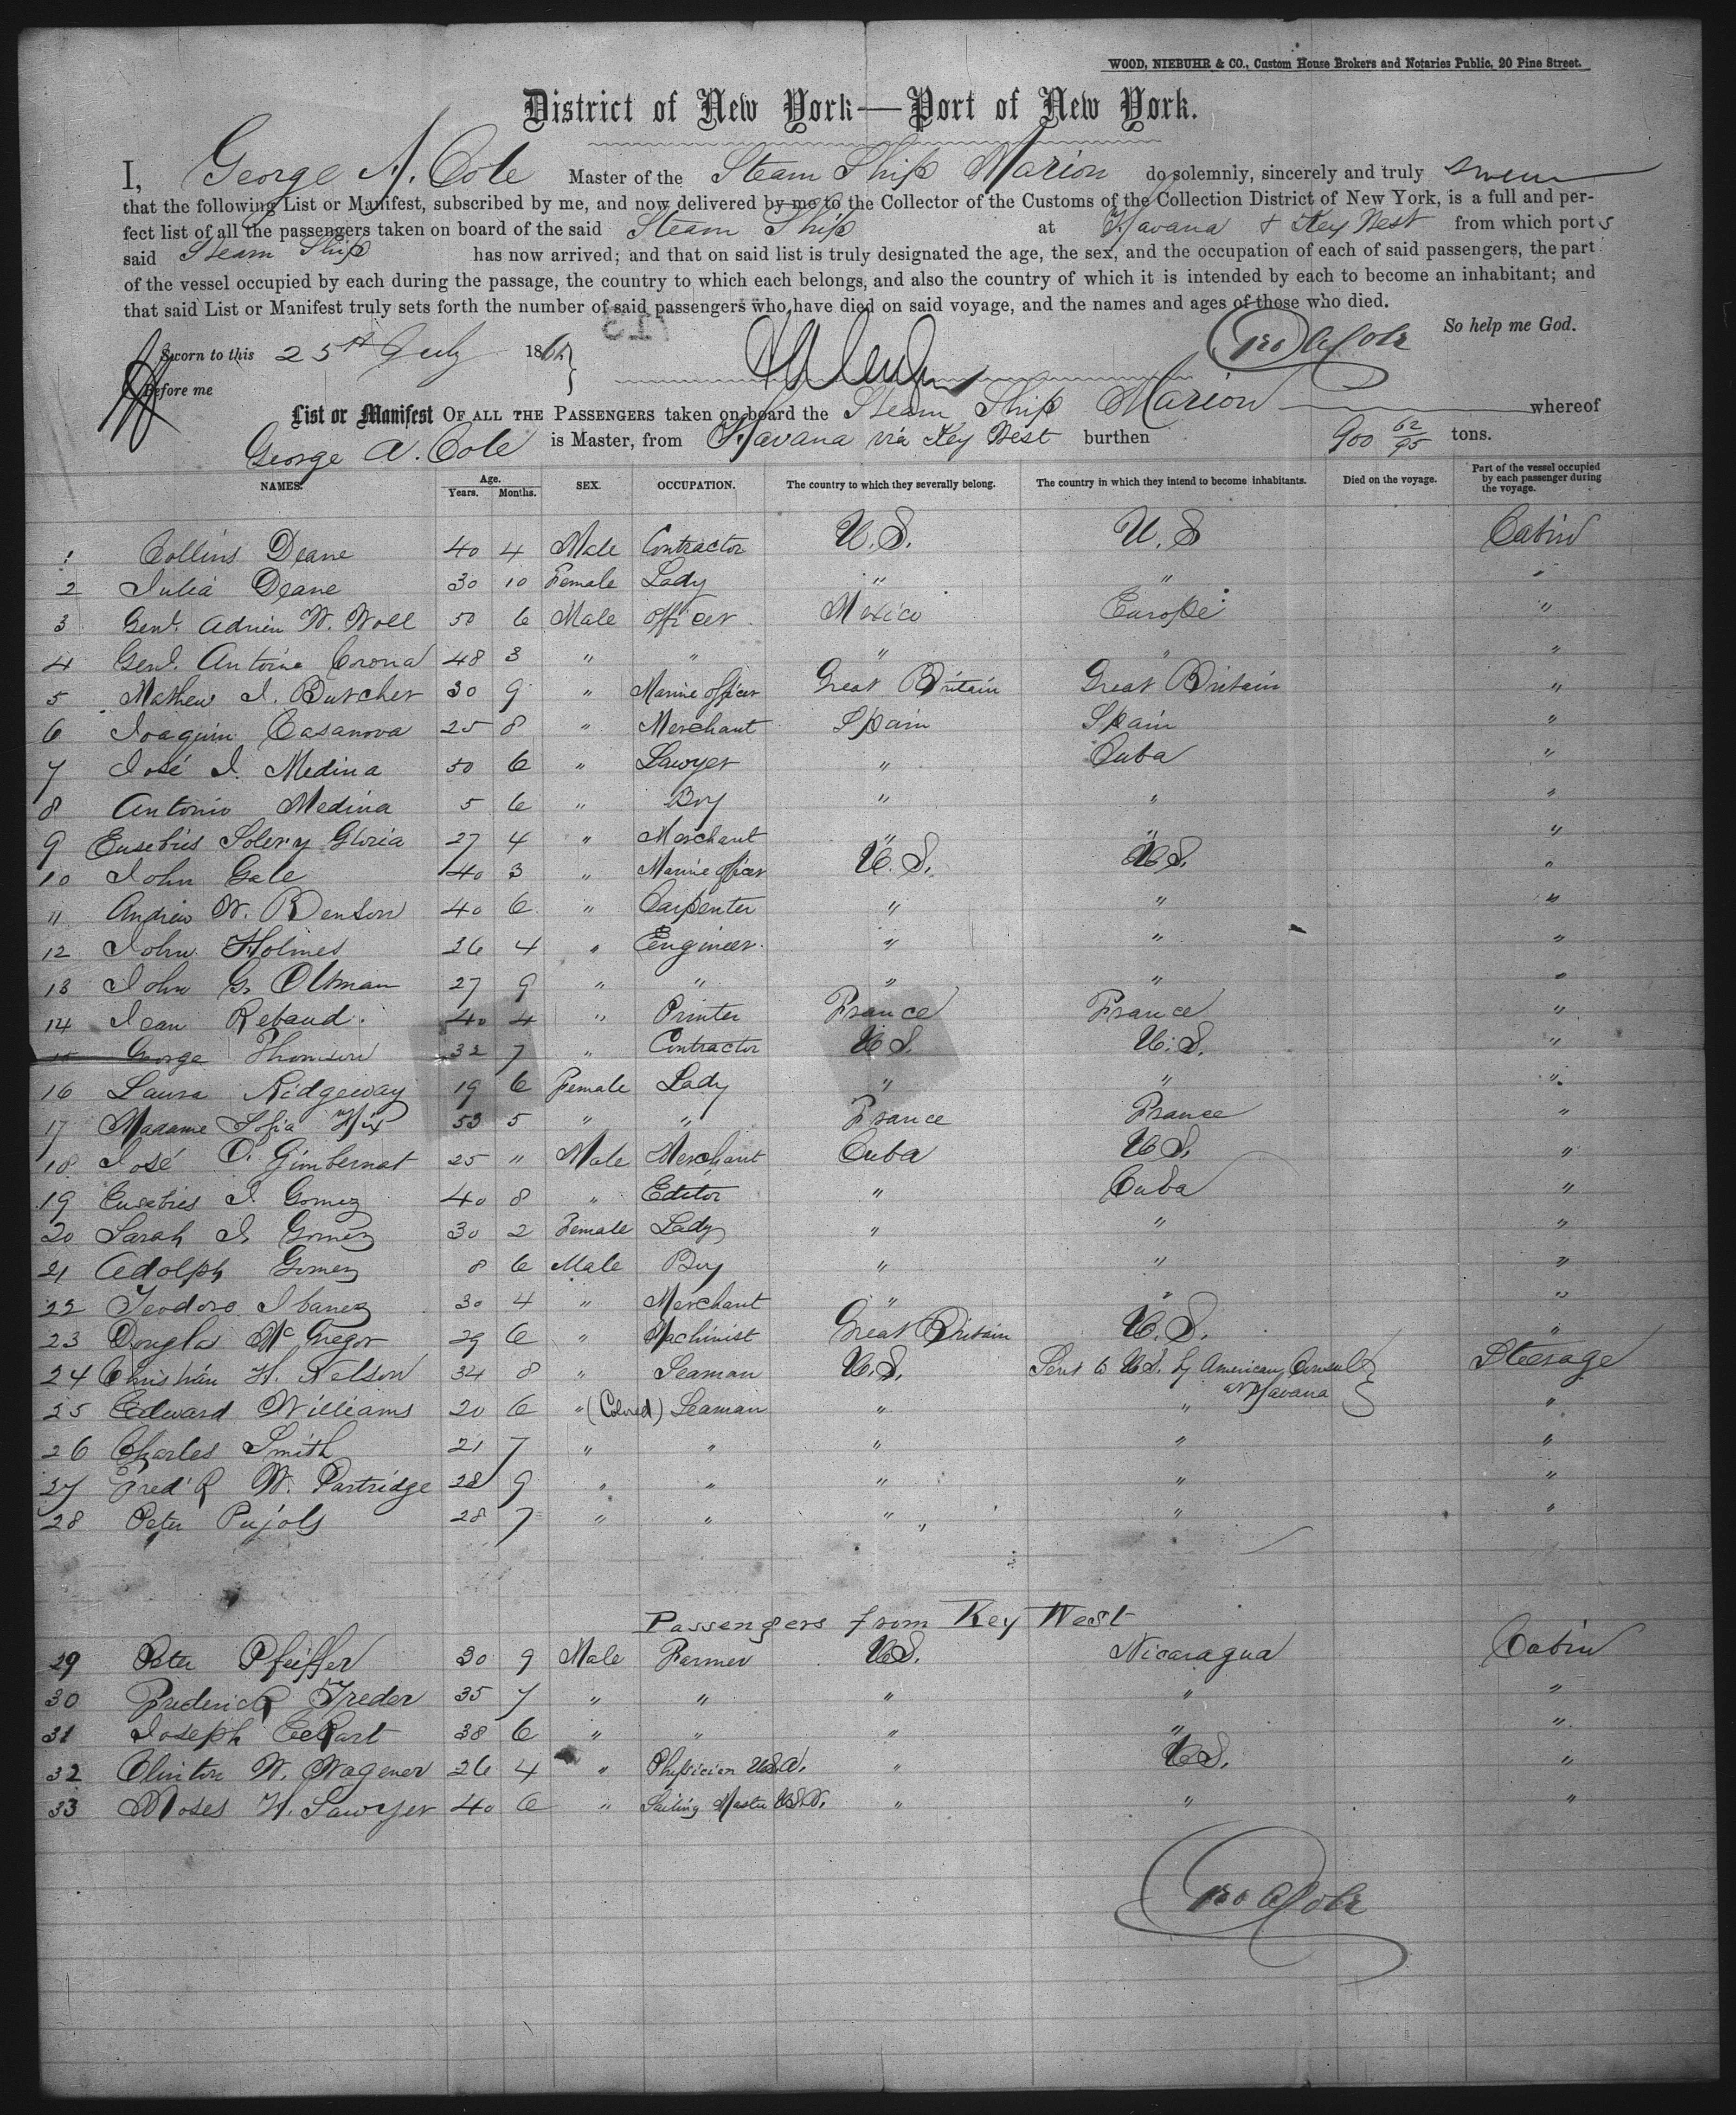 WOOD, NIEBUHR & CO., Custom House Brokers and Notaries Public, 20 Pine Street.
District of New York—Port of New York.
I, George A. Cole Master of the Steam Ship Marion do solemnly, sincerely and truly swear
that the following List or Manifest, subscribed by me, and now delivered by me to the Collector of the Customs of the Collection District of New York, is a full and per-
fect list of all the passengers taken on board of the said Steam Ship at Havana & Key West from which ports
said Steam Ship has now arrived; and that on said list is truly designated the age, the sex, and the occupation of each of said passengers, the part
of the vessel occupied by each during the passage, the country to which each belongs, and also the country of which it is intended by each to become an inhabitant; and
that said List or Manifest truly sets forth the number of said passengers who have died on said voyage, and the names and ages of those who died.
So help me God.
Sworn to this 25th July 186 Geo A Cole
Before me
List or Manifest OF ALL THE PASSENGERS taken on board the Steam Ship Marion whereof
George A. Cole is Master, from Havana via Key West burthen 900 62/95 tons.
NAMES. Age. Years. Months. SEX. OCCUPATION. The country to which they severally belong. The country in which they intend to become inhabitants. Died on the voyage. Part of the vessel occupied by each passenger during the voyage.
1 Collins Deane 40 4 Male Contractor U.S. U.S Cabin
2 Julia Deane 30 10 Female Lady " " "
3 Genl. Adrien W. Woll 50 6 Male Officer Mexico Europe "
4 Genl. Antoine Corona 48 3 " " " " "
5 Mathew J. Butcher 30 9 " Marine officer Great Britain Great Britain "
6 Joaquin Casanova 25 8 " Merchant Spain Spain "
7 José J. Medina 50 6 " Lawyer " Cuba "
8 Antonio Medina 5 6 " Boy " " "
9 Eusebius Soler y Gloria 27 4 " Merchant " " "
10 John Gale 40 3 " Marine officer U.S. U.S. "
11 Andrew W. Benson 40 6 " Carpenter " " "
12 John Holmes 26 4 " Engineer " " "
13 John G. Oltman 27 9 " " " " "
14 Jean Rebaud. 40 4 " Printer France France "
15 George Thomson 32 7 " Contractor U.S. U.S. "
16 Laura Ridgeway 19 6 Female Lady " " "
17 Madame Sofia Hix 53 5 " " France France "
18 José O. Gimbernat 25 " Male Merchant Cuba U.S. "
19 Eusebies J. Gomez 40 8 " Editor " Cuba "
20 Sarah J. Gomez 30 2 Female Lady " " "
21 Adolph Gomez 8 6 Male Boy " " "
22 Teodoro Ibanez 30 4 " Merchant " " "
23 Douglas McGregor 29 6 " Machinist Great Britain U.S. "
24 Christian H. Nelson 34 8 " Seaman U.S. Sent to U.S. by American Consul at Havana Steerage
25 Edward Williams 20 6 " (Colored) Seaman " " "
26 Charles Smith 21 7 " " " " "
27 Fred'k W. Partridge 28 9 " " " " "
28 Peter Pujols 28 7 " " " " "
Passengers from Key West
29 Peter Pfeiffer 30 9 Male Farmer U.S. Nicaragua Cabin
30 Frederick Treder 35 7 " " " " "
31 Joseph Eckart 38 6 " " " " "
32 Clinton W. Wagener 26 4 " Physician U.S.A. " U.S. "
33 Moses H. Sawyer 40 6 " Sailing Master U.S.N. " " "
Geo A Cole